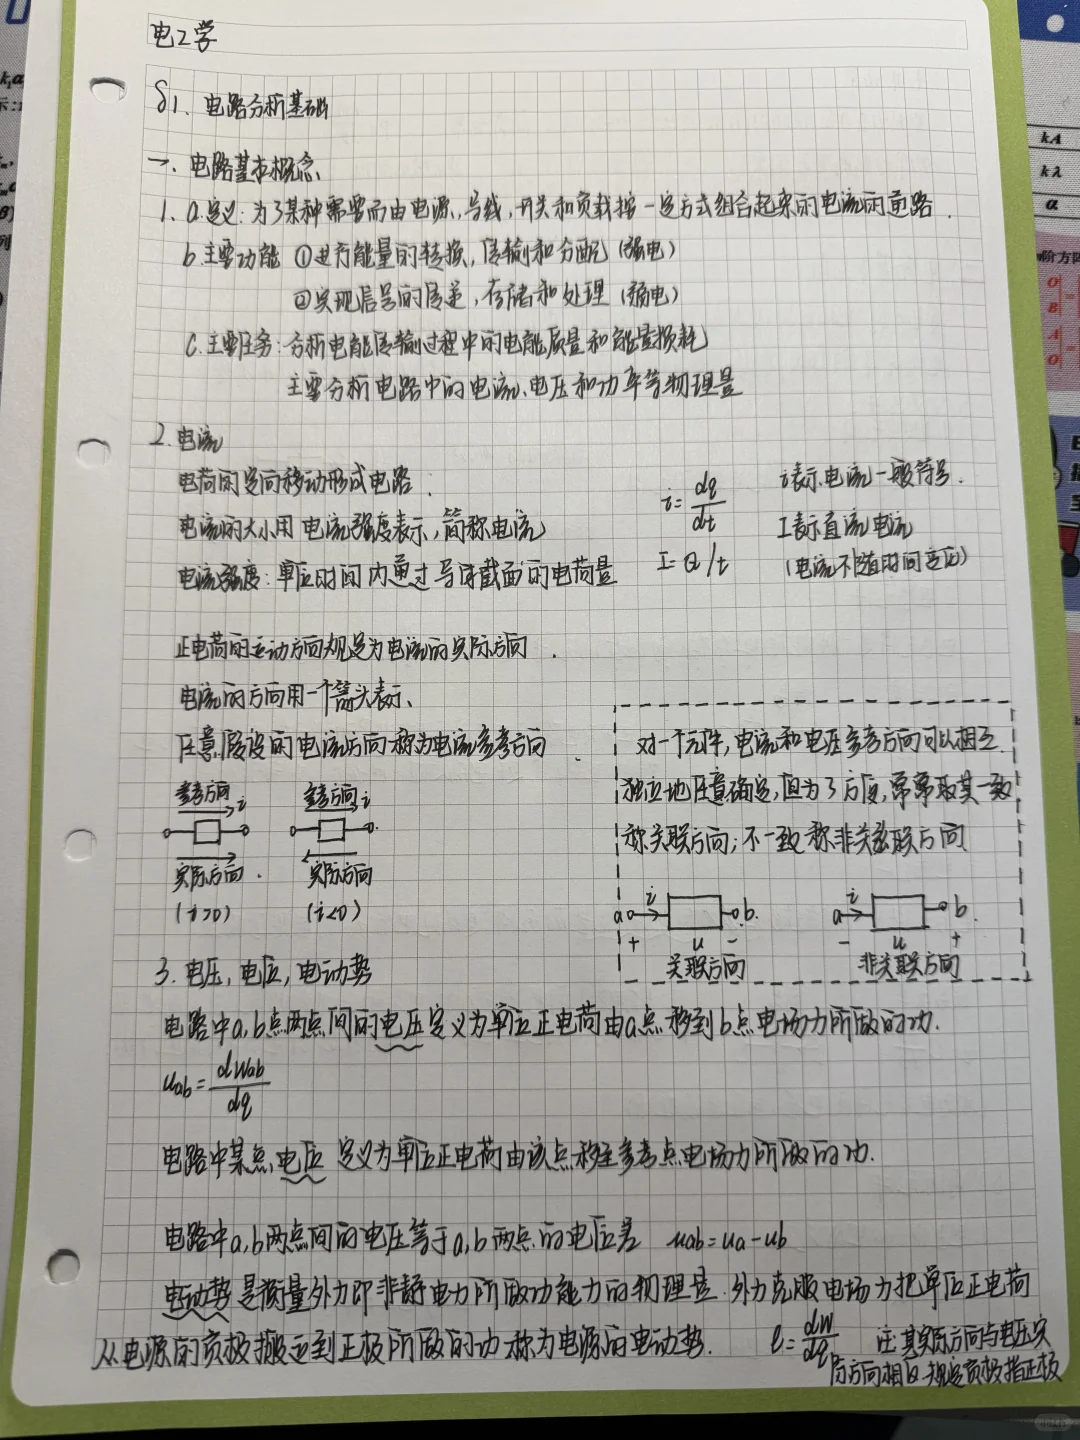 电工学
§1. 电路分析基础
一、电路基本概念
1. a.定义:为了某种需要而由电源,导线,开关和负载按一定方式组合起来的电流的通路.
b.主要功能 ①进行能量的转换,传输和分配(强电)
②实现信号的传递,存储和处理(弱电)
c.主要任务:分析电能传输过程中的电能质量和能量损耗
主要分析电路中的电流、电压和功率等物理量
2.电流
电荷的定向移动形成电路.
电流的大小用电流强度表示,简称电流
电流强度:单位时间内通过导体截面的电荷量
i=dq/dt
I=Q/t
i表示电流一般符号.
I表示直流电流
(电流不随时间变化)
正电荷的运动方向规定为电流的实际方向.
电流的方向用一个箭头表示、
任意假设的电流方向称为电流参考方向.
参考方向 i
实际方向.
(i>0)
参考方向 i
实际方向
(i<0)
对一个元件,电流和电压参考方向可以相互
独立地任意确定,但为了方便,常常取其一致
称关联方向;不一致称非关联方向
a i b.
+ u -
关联方向
a i b.
- u +
非关联方向
3.电压,电位,电动势
电路中a,b点两点间的电压定义为单位正电荷由a点移到b点电场力所做的功.
uab=dWab/dq
电路中某点电位定义为单位正电荷由该点移至参考点电场力所做的功.
电路中a,b两点间的电压等于a,b两点的电位差 uab=ua-ub
电动势是衡量外力即非静电力所做功能力的物理量.外力克服电场力把单位正电荷
从电源的负极搬运到正极所做的功称为电源的电动势. e=dW/dq 注:其实际方向与电压实
际方向相反,规定负极指正极